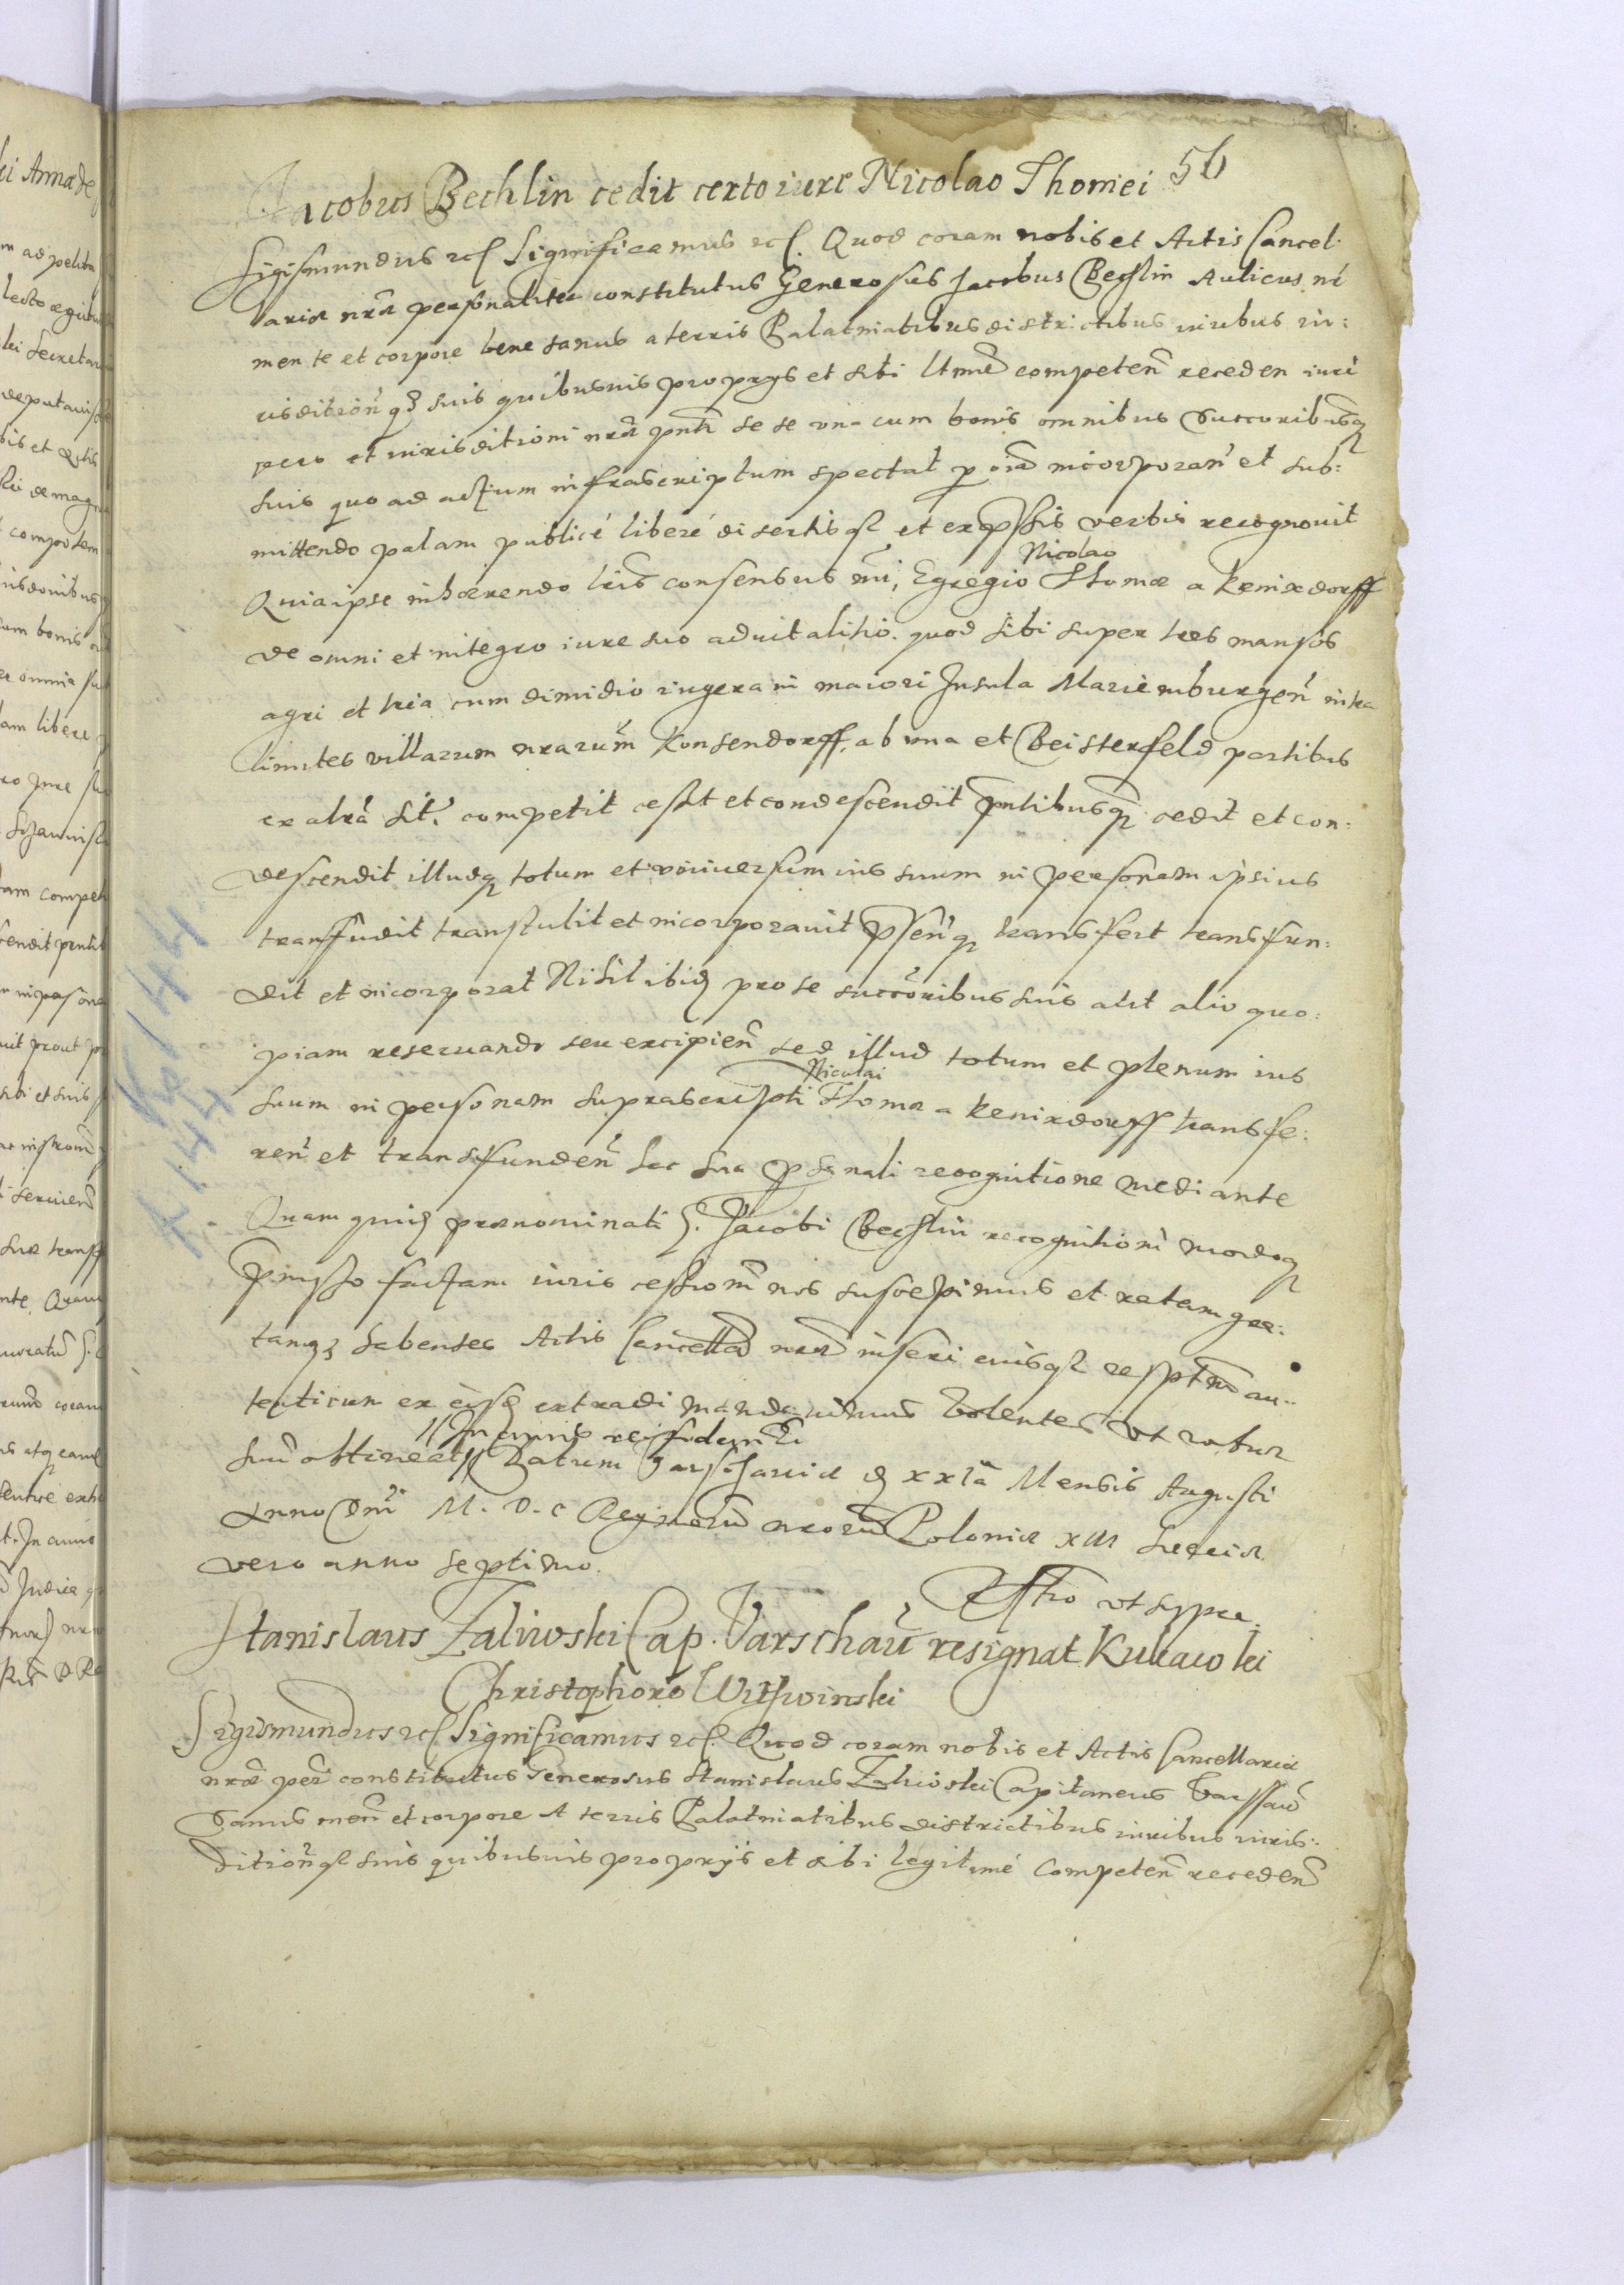 56
Jacobus Bechlin cedit certo iure Nicolao Thomei
Sigismundus etc Significamus etc. Quod coram nobis et Actis Cancel:
lariæ nræ personaliter constitutus Generosus Jacobus Bechlin Aulicus nr
mente et corpore bene sanus a terris Palatinatibus districtibus iuribus iu:
risdition qz suis quibusuis proprys et sibi ltime competen receden iuri
vero et iurisditioni nræ pnti se se vna cum bonis omnibus Succoribusqz
suis quo ad actum infrascriptum spectat p oia incorporan et sub:
mittendo palam publicé liberé disertis qz et expssis verbis recognouit
Quia ipse inhærendo lris consensus nri, Egregio Nicolao Thomæ a Kenixdorff
de omni et integro iure suo aduitalitio quod sibi super tres mansos
agri et tria cum dimidio iugera in maiori Insula Mariemburgen intra
limites villarum nrarum Konsendorff, ab vna et Beisterfeld partibus
ex altra sit. competit cessit et condescendit pntibusqz cedit et con:
descendit illudqz totum et vniuersum ius suum in personam ipsius
transfudit transtulit et incorporauit psenqz transfert transfun:
dit et incorporat Nihil ibid pro se succoribus suis aut alio quo:
piam reseruando seu excipien sed illud totum et plenum ius
suum in personam suprascripti Nicolai Thomæ a Kenixdorff transfe:
ren et transfunden hac sua psonali recognitione mediante
Quam quid prænominati G. Jacobi Bechlin recognitionem modoqz
pmisso factam iuris cessionem nos suscepimus et ratam gra:
tamqz habentes Actis Cancellæ nræ inseri eiusqz rescptum au:
tenticum ex eisd extradi mandauimus Volentes vt robur
suum obtineat // In cuius rei fidem Etc Datum Varschauiæ d xxia Mensis Augusti
Anno Dni M. D. C Regnorum nrorum Poloniæ xiii Sueciæ
vero anno septimo.
Rltio vt supra.
Stanislaus Zaliwski Cap. Varschau resignat Kukawski
Christophoro Witwinski
Sigismundus etc Significamus etc. Quod coram nobis et Actis Cancellariæ
nræ per constitutus Generosus Stanislaus Zaliwski Capitaneus Varssau
Sanus men et corpore A terris Palatinatibus districtibus iuribus iuris:
ditionqz suis quibusuis proprijs et sibi legitimé Competen receden